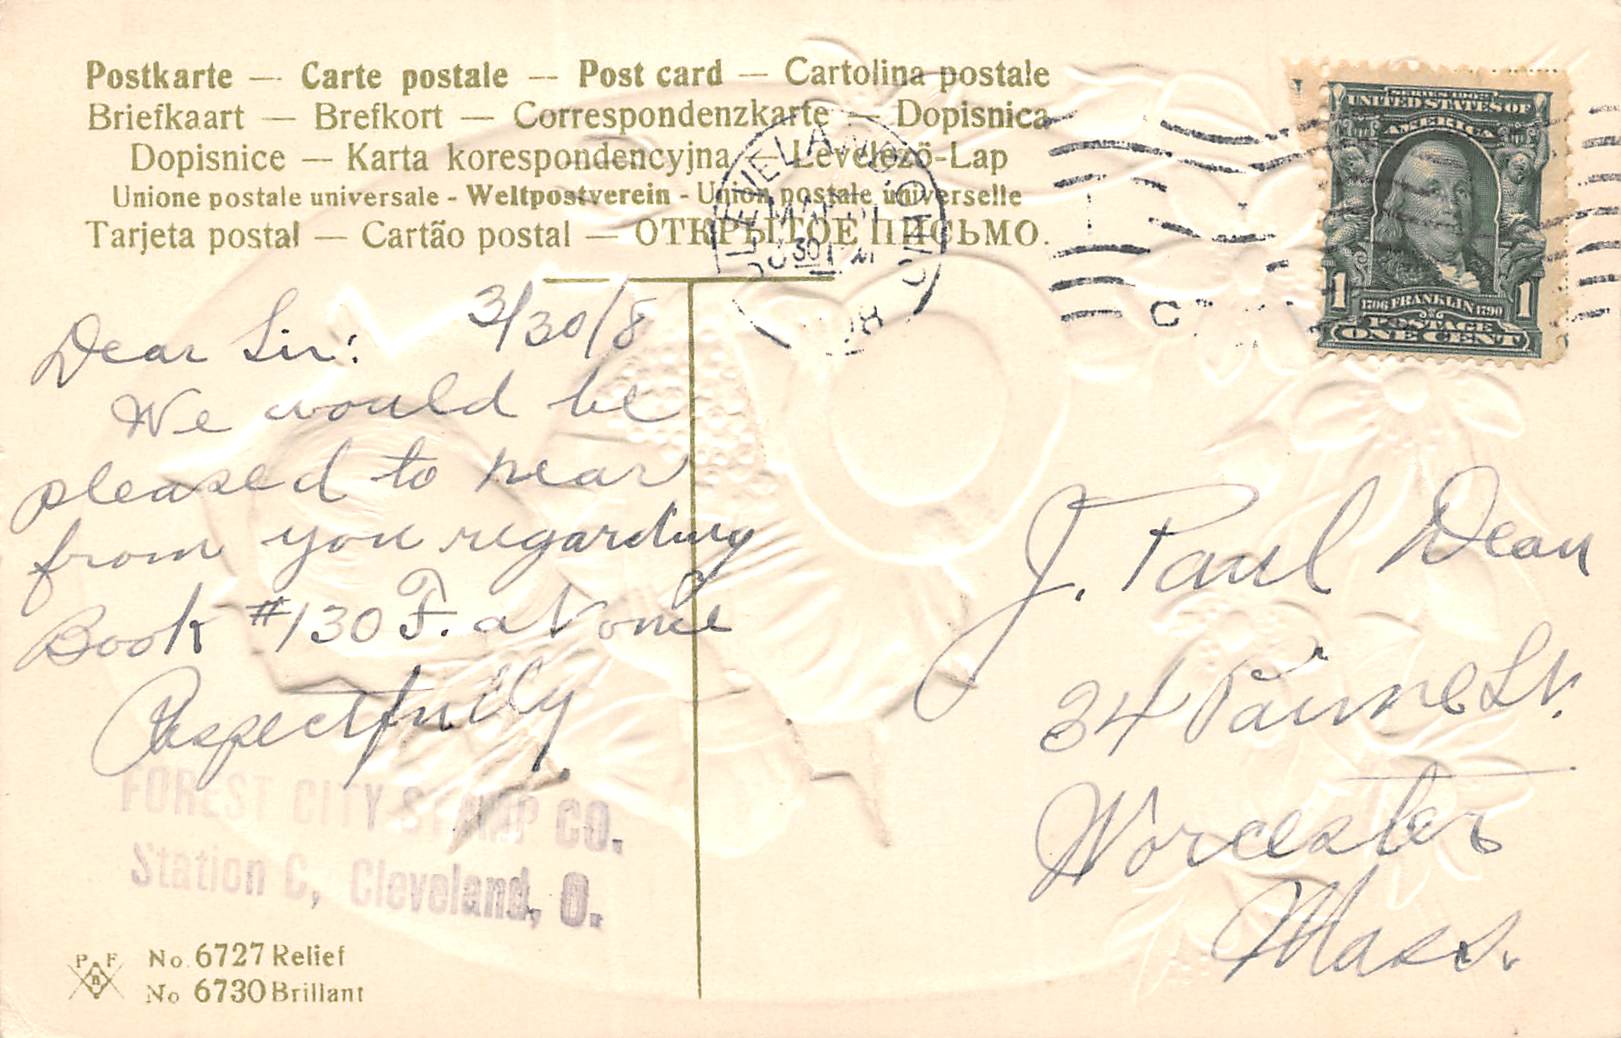 Postkarte — Carte postale — Post card — Cartolina postale
Briefkaart — Brefkort — Correspondenzkarte — Dopisnica
Dopisnice — Karta korespondencyjna — Levelezö-Lap
Unione postale universale - Weltpostverein - Union postale universelle
Tarjeta postal — Cartão postal — ОТКРЫТОЕ ПИСЬМО.
CLEVELAND, OHIO
MAR 31
30 M
08
C
SERIES 1902
UNITED STATES OF
AMERICA
1 1706 FRANKLIN 1790 1
POSTAGE
ONE CENT
3/30/8
Dear Sir:
We would be
pleased to hear
from you regarding
Book #130 F. at once
Respectfully
FOREST CITY STAMP CO.
Station C, Cleveland, O.
J. Paul Dean
34 Paine St.
Worcester
Mass.
P F
B
No. 6727 Relief
No 6730 Brillant